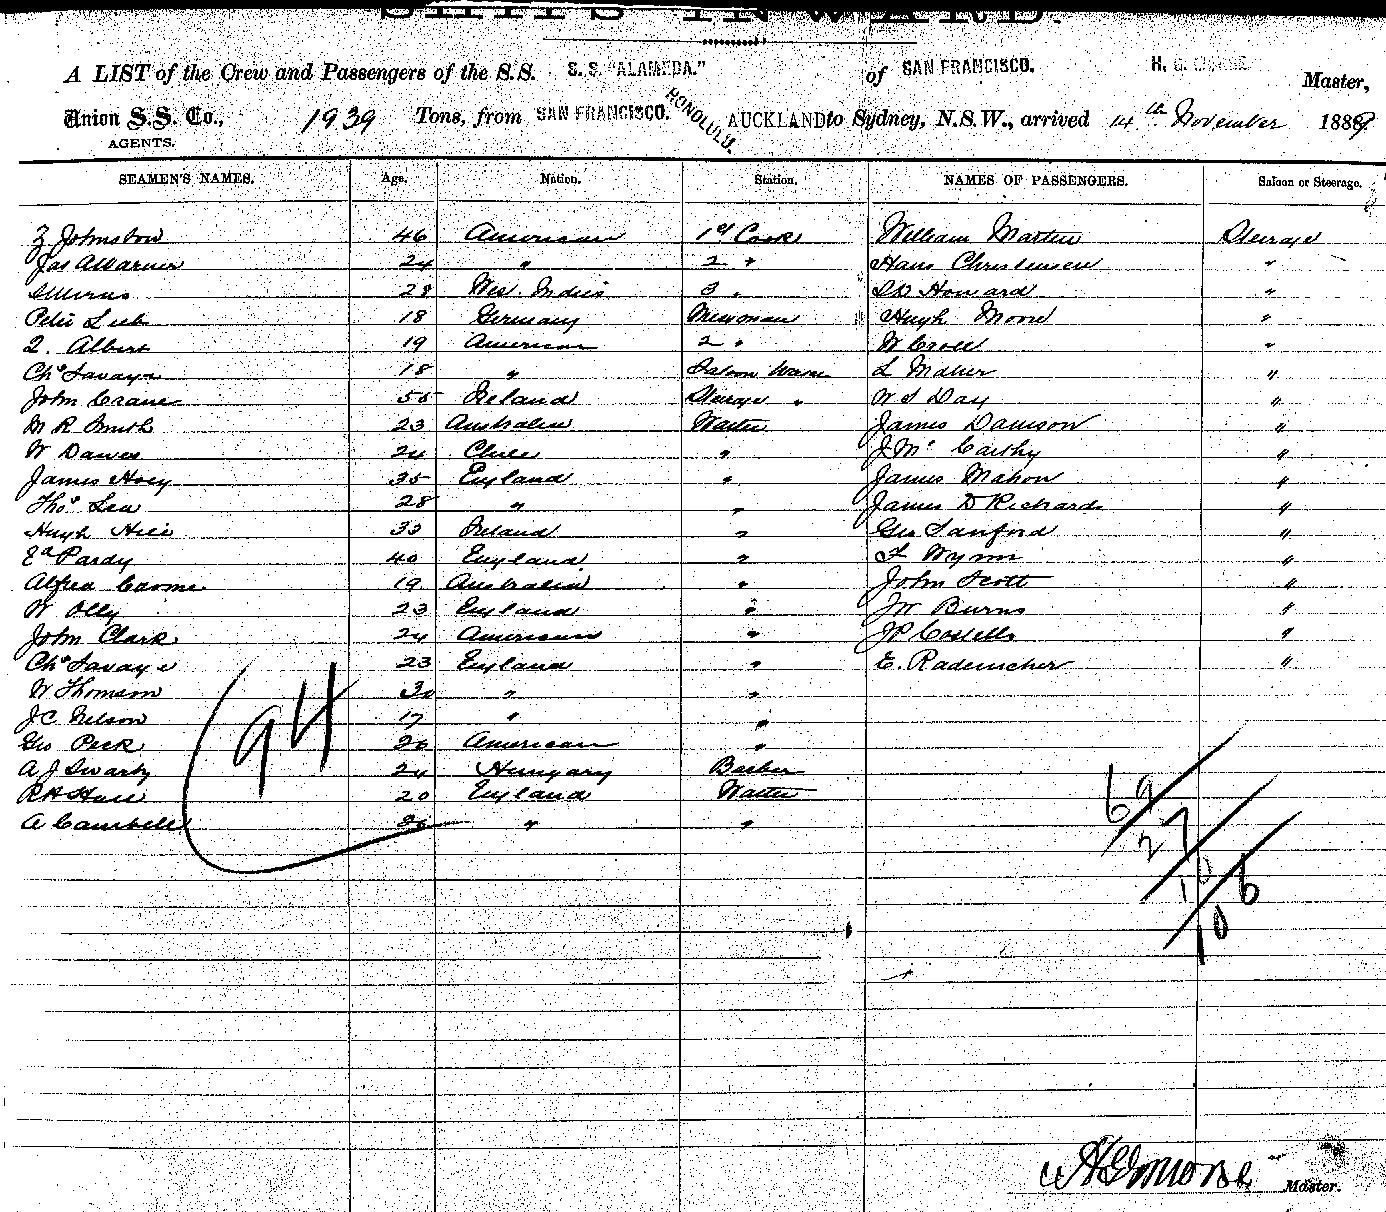 SHIPS INWARD.
A LIST of the Crew and Passengers of the S.S. S. S. "ALAMEDA." of SAN FRANCISCO. H. G. Master,
Union S.S. Co., 1939 Tons, from SAN FRANCISCO. HONOLULU. AUCKLAND to Sydney, N.S.W., arrived 14th November 1889
AGENTS.
SEAMEN'S NAMES. Age. Nation. Station. NAMES OF PASSENGERS. Saloon or Steerage.
Z Johnston 46 American 1st Cook William Martin Steerage
Jas A Warner 24 " 2 " Hans Christensen "
28 Wes. Indies 3 " Howard "
Peter 18 Germany Messman Hugh Moore "
Albert 19 American 2 " W Croll "
Chs Savage 18 " Saloon L Maher "
John Crane 55 Ireland Steerage " W S Day "
M R Smith 23 Australia Waiter James Dawson "
W Dawes 24 Chile " J McCarthy "
James Hoey 35 England " James Mahon "
Thos Lea 28 " " James D Richards "
Hugh 33 Ireland " Geo Sanford "
Ed Pardy 40 England " F Wynn "
Alfred 19 Australia " John Scott "
W Olly 23 England " JW Burns "
John Clark 24 American " JP Costello "
Chs Savage 23 England " E. Rademcher "
W Thomson 30 " "
J C Nelson 17 " "
Geo Peck 20 American "
A J Swartz 24 Hungary Barber
R H Hall 20 England Waiter
A Cambell 26 " "
94
69
27
10
106
H G Morse Master.